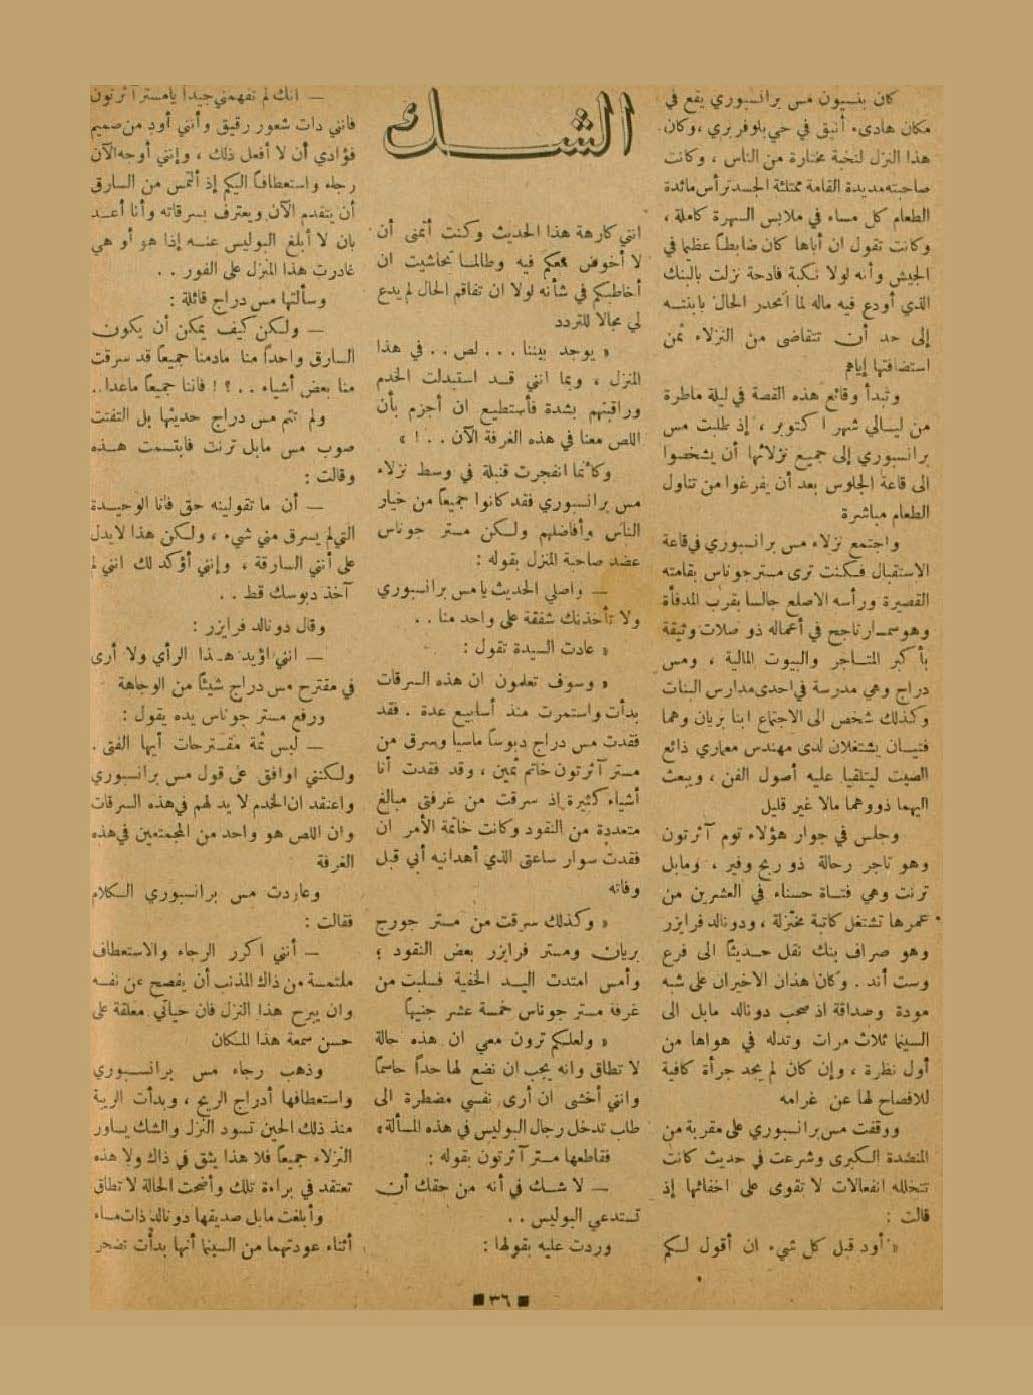 الشك
كان بنسيون مس برانسبوري يقع في
مكان هادىء أنيق في حي بلوفربري ، وكان
هذا النزل لنخبة مختارة من الناس ، وكانت
صاحبته مديدة القامة ممتلئة الجسد ترأس مائدة
الطعام كل مساء في ملابس السهرة كاملة ،
وكانت تقول ان أباها كان ضابطاً عظيما في
الجيش وأنه لولا نكبة فادحة نزلت بالبنك
الذي أودع فيه ماله لما انحدر الحال بابنته
إلى حد أن تتقاضى من النزلاء ثمن
استضافتها إياهم
وتبدأ وقائع هذه القصة في ليلة ماطرة
من ليالي شهر اكتوبر ، إذ طلبت مس
برانسبوري إلى جميع نزلائها أن يشخصوا
الى قاعة الجلوس بعد أن يفرغوا من تناول
الطعام مباشرة
واجتمع نزلاء مس برانسبوري في قاعة
الاستقبال فكنت ترى مستر جوناس بقامته
القصيرة ورأسه الاصلع جالسا بقرب المدفأة
وهو سمسار ناجح في أعماله ذو صلات وثيقة
بأكبر المتاجر والبيوت المالية ، ومس
دراج وهي مدرسة في احدى مدارس البنات
وكذلك شخص الى الاجتماع ابنا بريان وهما
فتيان يشتغلان لدى مهندس معماري ذائع
الصيت ليتلقيا عليه أصول الفن ، ويبعث
اليهما ذووهما مالا غير قليل
وجلس في جوار هؤلاء توم آثرتون
وهو تاجر رحالة ذو ربح وفير ، ومابل
ترنت وهي فتاة حسناء في العشرين من
عمرها تشتغل كاتبة مختزلة ، ودونالد فرايزر
وهو صراف بنك نقل حديثاً الى فرع
وست أند . وكان هذان الاخيران على شبه
مودة وصداقة اذ صحب دونالد مابل الى
السينما ثلاث مرات وتدله في هواها من
أول نظرة ، وإن كان لم يجد جرأة كافية
للافصاح لها عن غرامه
ووقفت مس برانسبوري على مقربة من
المنضدة الكبرى وشرعت في حديث كانت
تتخلله انفعالات لا تقوى على اخفائها إذ
قالت :
« أود قبل كل شيء ان أقول لكم
انني كارهة هذا الحديث وكنت أتمنى أن
لا أخوض معكم فيه وطالما تحاشيت ان
أخاطبكم في شأنه لولا ان تفاقم الحال لم يدع
لي مجالا للتردد
« يوجد بيننا . . . لص . . في هذا
المنزل ، وبما انني قد استبدلت الخدم
وراقبتهم بشدة فأستطيع ان أجزم بأن
اللص معنا في هذه الغرفة الآن . . ! »
وكأنما انفجرت قنبلة في وسط نزلاء
مس برانسبوري فقد كانوا جميعاً من خيار
الناس وأفاضلهم ولكن مستر جوناس
عضد صاحبة المنزل بقوله :
— واصلي الحديث يا مس برانسبوري
ولا تأخذنك شفقة على واحد منا . .
« عادت السيدة تقول :
« وسوف تعلمون ان هذه السرقات
بدأت واستمرت منذ أسابيع عدة . فقد
فقدت مس دراج دبوساً ماسيا وسرق من
مستر آثرتون خاتم ثمين ، وقد فقدت أنا
أشياء كثيرة إذ سرقت من غرفتي مبالغ
متعددة من النقود وكانت خاتمة الأمر ان
فقدت سوار ساعتي الذي أهدانيه أبي قبل
وفاته
« وكذلك سرقت من مستر جورج
بريان ومستر فرايزر بعض النقود ؛
وأمس امتدت اليد الخفية فسلبت من
غرفة مستر جوناس خمسة عشر جنيها
« ولعلكم ترون معي ان هذه حالة
لا تطاق وانه يجب ان نضع لها حداً حاسما
وانني أخشى ان أرى نفسي مضطرة الى
طلب تدخل رجال البوليس في هذه المسألة »
فقاطعها مستر آثرتون بقوله :
— لا شك في أنه من حقك أن
تستدعي البوليس . .
وردت عليه بقولها :
— انك لم تفهمني جيداً يا مستر آثرتون
فانني ذات شعور رقيق وأنني أود من صميم
فؤادي أن لا أفعل ذلك ، وإنني أوجه الآن
رجاء واستعطافاً اليكم إذ ألتمس من السارق
أن يتقدم الآن ويعترف بسرقاته وأنا أعد
بان لا أبلغ البوليس عنه إذا هو أو هي
غادرت هذا المنزل على الفور . .
وسألتها مس دراج قائلة :
— ولكن كيف يمكن أن يكون
السارق واحداً منا مادمنا جميعاً قد سرقت
منا بعض أشياء . . ؟ ! فاننا جميعاً ماعدا . .
ولم تتم مس دراج حديثها بل التفتت
صوب مس مابل ترنت فابتسمت هذه
وقالت :
— أن ما تقولينه حق فانا الوحيدة
التي لم يسرق مني شيء ، ولكن هذا لا يدل
على أنني السارقة ، وإنني أؤكد لك انني لم
آخذ دبوسك قط . .
وقال دونالد فرايزر :
— انني اؤيد هذا الرأي ولا أرى
في مقترح مس دراج شيئا من الوجاهة
ورفع مستر جوناس يده يقول :
— ليس ثمة مقترحات أيها الفتى .
ولكنني اوافق على قول مس برانسبوري
واعتقد ان الخدم لا يد لهم في هذه السرقات
وان اللص هو واحد من المجتمعين في هذه
الغرفة
وعاودت مس برانسبوري الكلام
فقالت :
— أنني اكرر الرجاء والاستعطاف
ملتمسة من ذاك المذنب أن يفصح عن نفسه
وان يبرح هذا النزل فان حياتي معلقة على
حسن سمعة هذا المكان
وذهب رجاء مس برانسبوري
واستعطافها أدراج الريح ، وبدأت الريبة
منذ ذلك الحين تسود النزل والشك يساور
النزلاء جميعاً فلا هذا يثق في ذاك ولا هذه
تعتقد في براءة تلك وأضحت الحالة لا تطاق
وأبلغت مابل صديقها دونالد ذات مساء
أثناء عودتهما من السينما أنها بدأت تضجر
٣٦